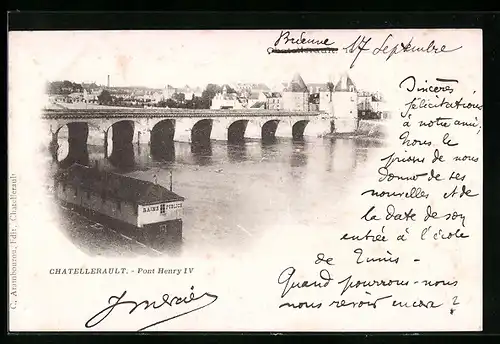 Brienne 17 Septembre
Chatellerault
Sincères
félicitations
à notre ami,
nous le
prions de nous
donner de ses
nouvelles et de
la date de son
entrée à l'école
de
Quand pourrons-nous
nous revoir encore ?
BAINS PUBLICS
CHATELLERAULT. - Pont Henry IV
C., Arambourou, Edit., Chatellerault